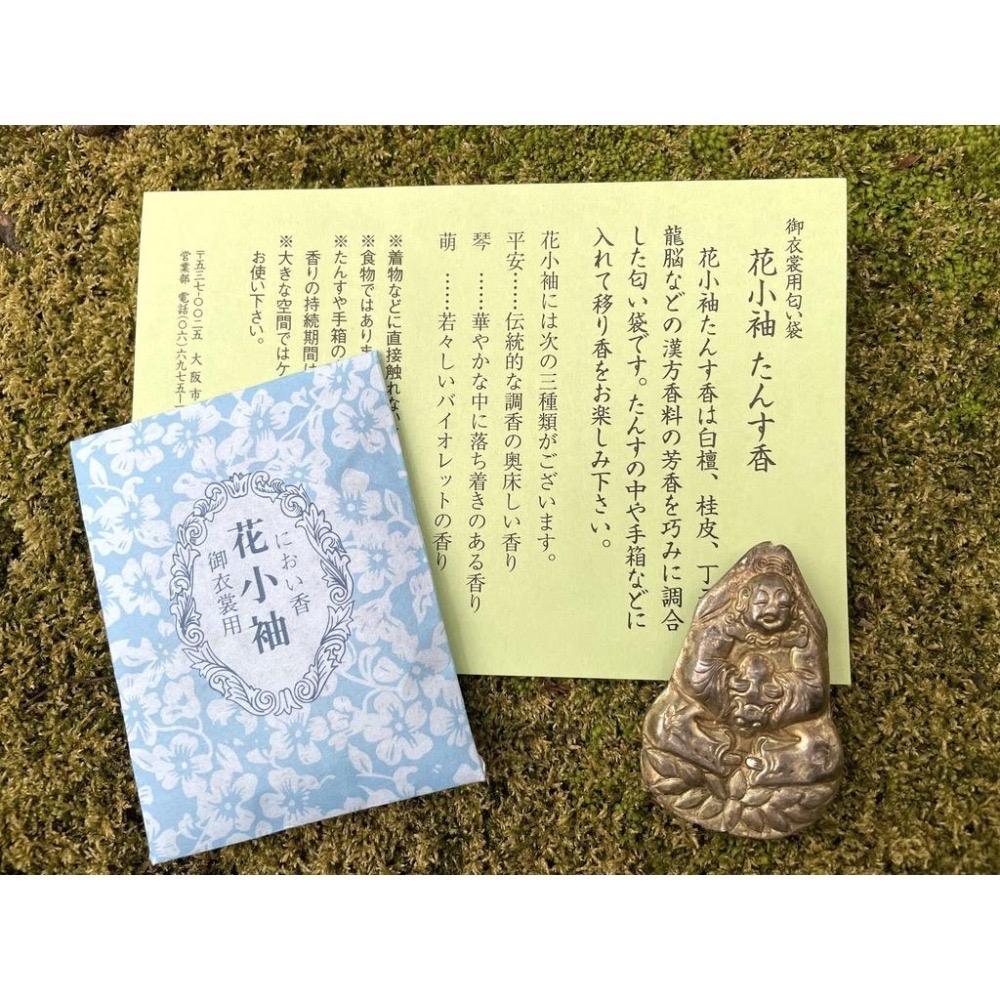 御衣裳用匂い袋
花小袖 たんす香
花小袖たんす香は白檀、桂皮、丁
龍脳などの漢方香料の芳香を巧みに調合
した匂い袋です。たんすの中や手箱などに
入れて移り香をお楽しみ下さい。
花小袖には次の三種類がございます。
平安……伝統的な調香の奥床しい香り
琴 ……華やかな中に落ち着きのある香り
萌 ……若々しいバイオレットの香り
※着物などに直接触れない
※食物ではありま
※たんすや手箱の
香りの持続期間は
※大きな空間ではケ
お使い下さい。
〒五三七-〇〇二五 大阪市
営業部 電話(〇六)六九七五-
におい香
花小袖
御衣裳用